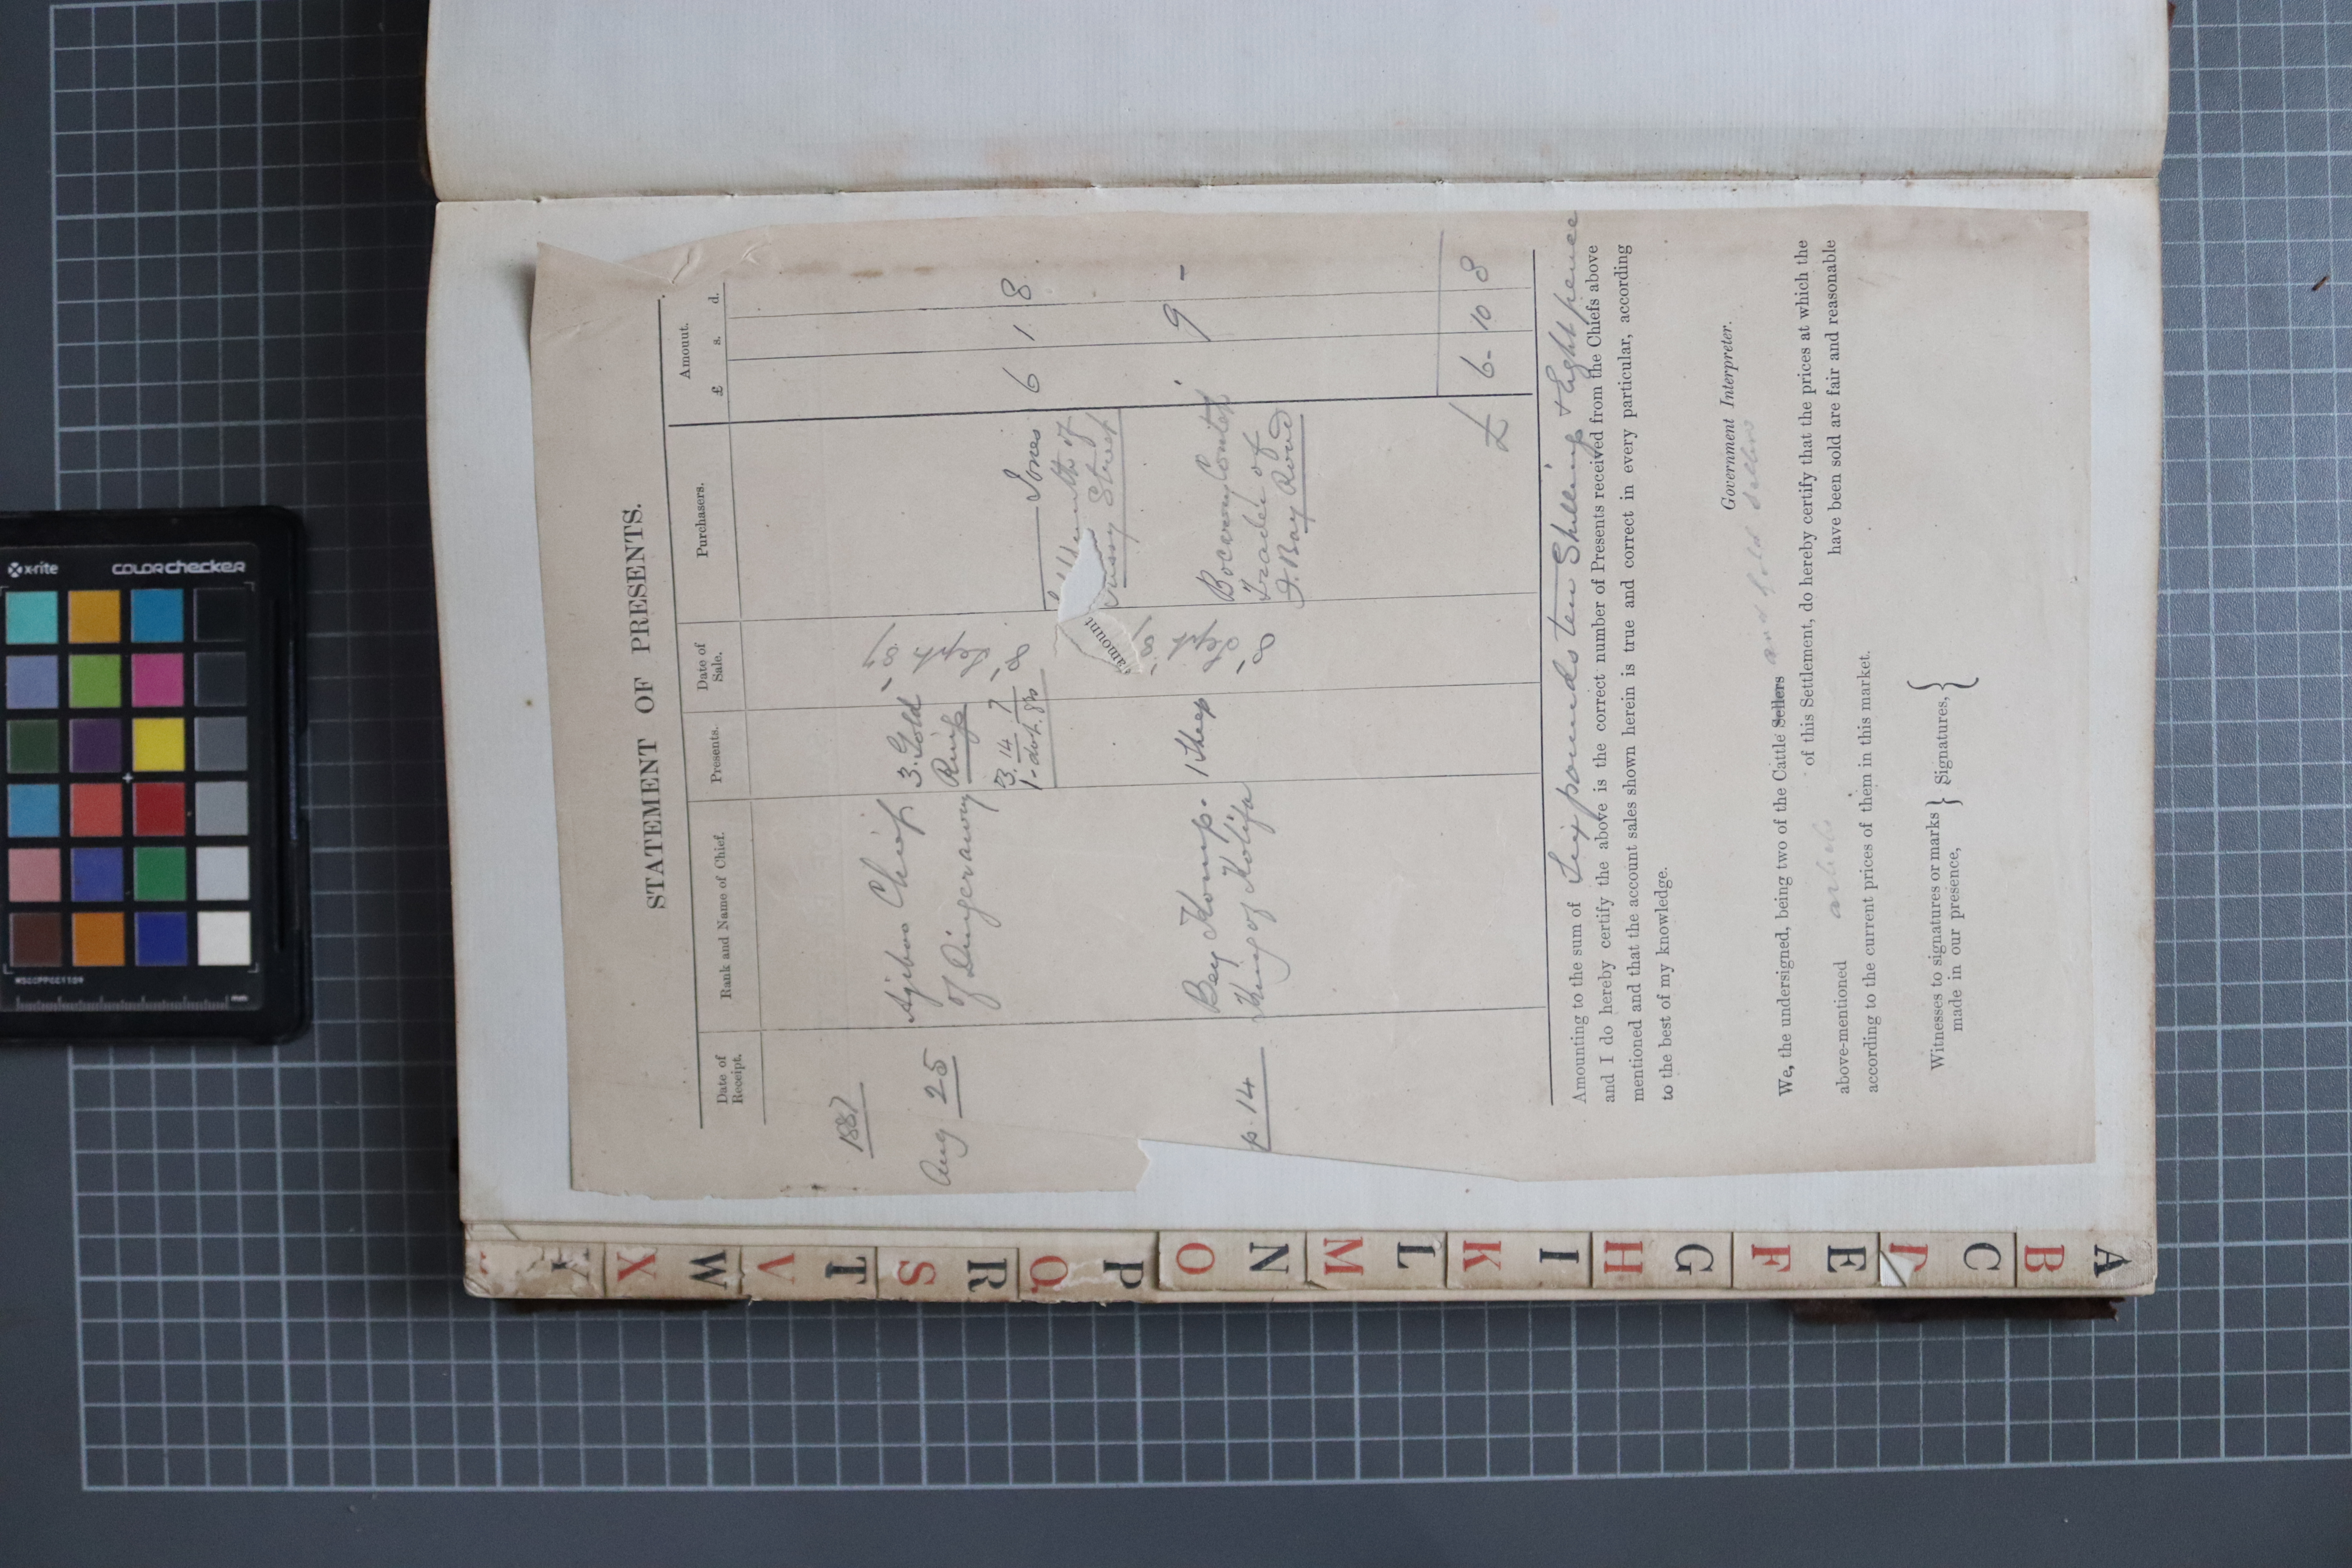 STATEMENT OF PRESENTS.
Date of Receipt. Rank and Name of Chief. Presents. Date of Sale. Purchasers. Amount.
£ s. d.
1887
Aug 25 Ajeboo Chief 3 Gold
of Dingeraway Rings
3. 14 7
1 dwt. grs
Jones
of
Street
6 1 8
amount
p. 14 Bey Komp. 1 Sheep
King of Kolifa
Trader of
F. Bay Road
9 -
£ 6 - 10 8
Amounting to the sum of Six pounds ten Shillings & Eight pence
and I do hereby certify the above is the correct number of Presents received from the Chiefs above
mentioned and that the account sales shown herein is true and correct in every particular, according
to the best of my knowledge.
Government Interpreter.
We, the undersigned, being two of the Cattle Sellers and gold sellers
of this Settlement, do hereby certify that the prices at which the
above-mentioned articles have been sold are fair and reasonable
according to the current prices of them in this market.
Witnesses to signatures or marks } Signatures, }
made in our presence,
A
B
C
E
F
G
H
I
K
L
M
N
O
P
Q
R
S
T
V
W
X
Y
x-rite
colorchecker
mm